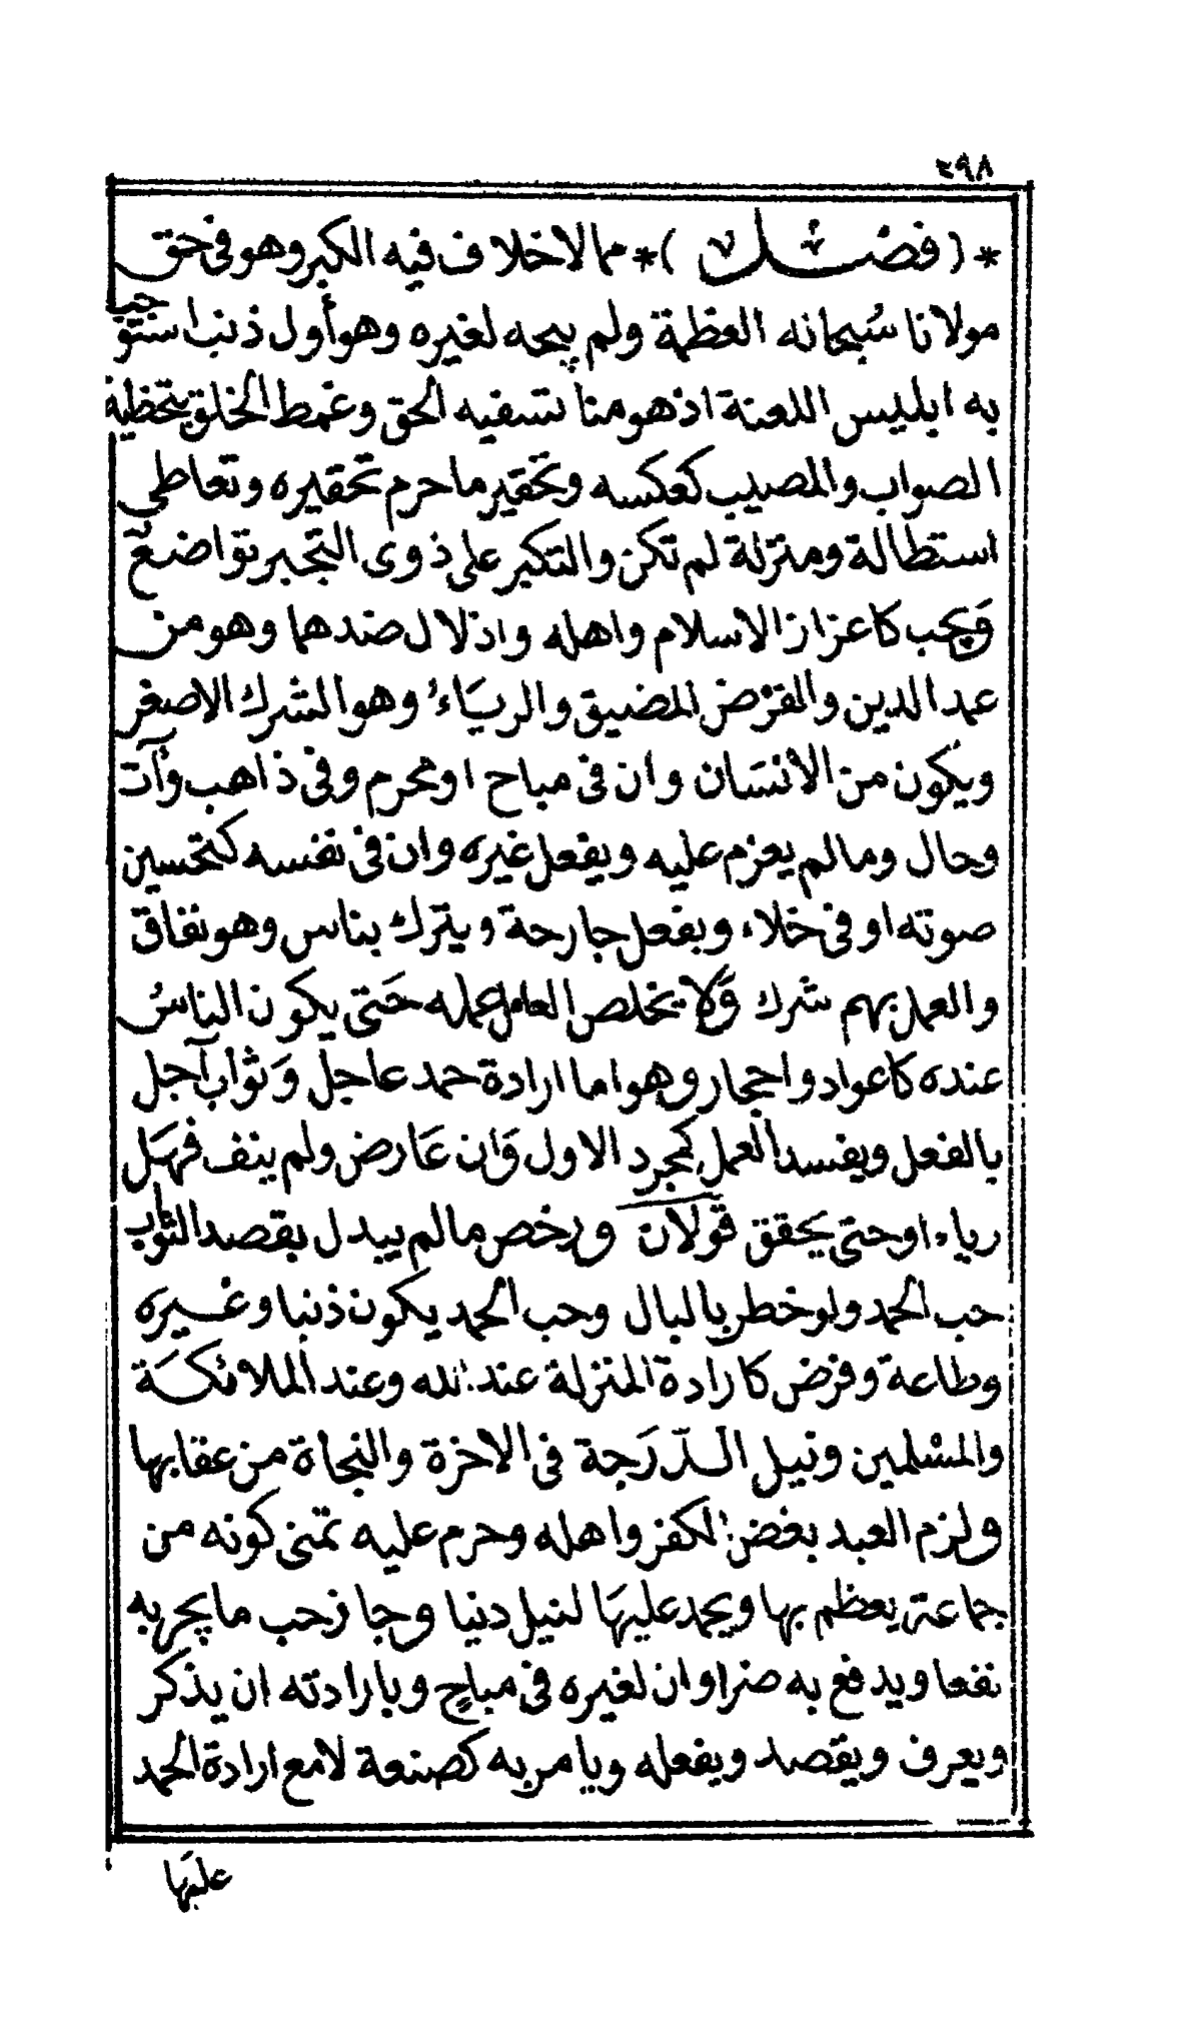 ٢٩٨
*( فصل )* مما لا خلاف فيه الكبر وهو في حق
مولانا سُبحانه العظمة ولم يبحه لغيره وهو أول ذنب استوجب
به ابليس اللعنة اذ هو منا تسفيه الحق وغمط الخلق بتخطية
الصواب والمصيب كعكسه وتحقير ما حرم تحقيره وتعاطي
استطالة ومنزلة لم تكن والتكبر على ذوى التجبر تواضع
وَيجب كاعزاز الاسلام واهله واذلال ضدهما وهو من
عمد الدين والفرْض المضيق والريَاءُ وهو الشرك الاصغر
ويكون من الانسَان وان فى مباح او محرم وفى ذاهب وآت
وحال وما لم يعزم عليه ويفعل غيره وان فى نفسه كتحسين
صوته او فى خلاء وبفعل جارحة ويترك بناس وهو نفاق
والعمل بهم شرك وَلا يخلص العامل عمله حَتى يكون الناسُ
عنده كاعواد واحجار وهو اما ارادة حمد عاجل وَثواب آجل
بالفعل ويفسد العمل كمجرد الاول وَان عَارض ولم ينف فهَل
رياء او حتى يحَقق قولان ورخص ما لم يبدل بقصد الثواب
حب الحمد ولو خطر بالبال وحب الحمد يكون ذنبا وغيره
وطاعة وفرض كارادة المنزلة عند الله وعند الملائكَة
والمسْلمين ونيل الدّرَجة فى الاخرة والنجاة من عقابها
ولزم العبد بغض الكفر واهله وحرم عليه تمنى كونه من
جماعة يعظم بها ويحمد عليهَا لنيل دنيا وجاز حب ما يجر به
نفعا ويدفع به ضرا وان لغيره فى مباحٍ وبارادته ان يذكر
ويعرف ويقصد ويفعله ويامر به كصنعة لا مع ارادة الحمد
عليهَا